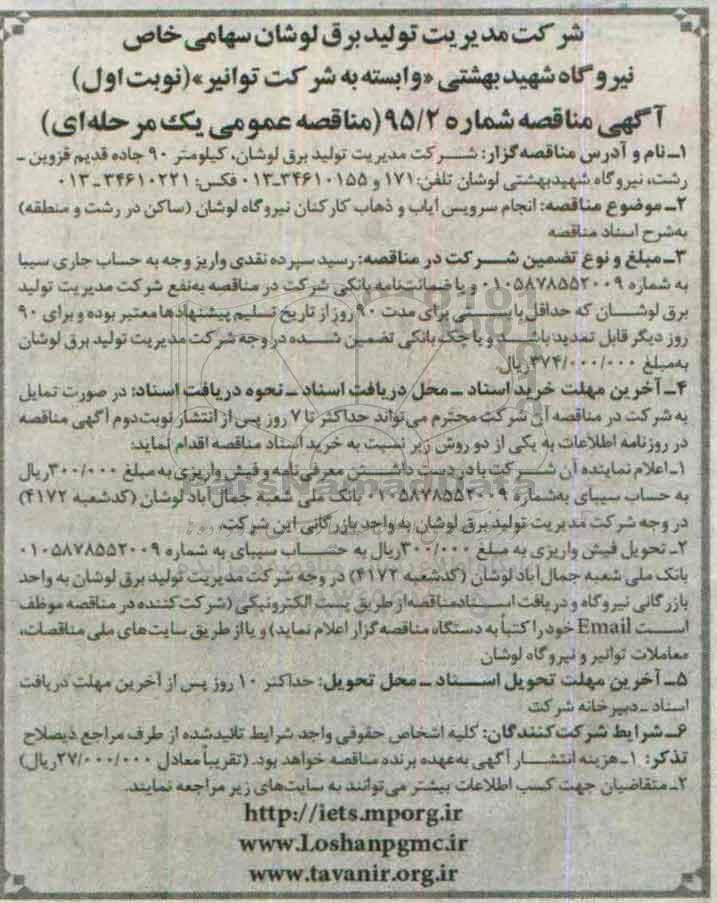 شرکت مدیریت تولید برق لوشان سهامی خاص
نیروگاه شهید بهشتی «وابسته به شرکت توانیر»(نوبت اول)
آگهی مناقصه شماره ۹۵/۲(مناقصه عمومی یک مرحله‌ای)
۱ـ نام و آدرس مناقصه‌گزار: شرکت مدیریت تولید برق لوشان، کیلومتر ۹۰ جاده قدیم قزوین ـ
رشت، نیروگاه شهیدبهشتی لوشان تلفن:۱۷۱ و ۳۴۶۱۰۱۵۵-۰۱۳ فکس: ۳۴۶۱۰۲۲۱-۰۱۳
۲ـ موضوع مناقصه: انجام سرویس ایاب و ذهاب کارکنان نیروگاه لوشان (ساکن در رشت و منطقه)
به‌شرح اسناد مناقصه
۳ـ مبلغ و نوع تضمین شرکت در مناقصه: رسید سپرده نقدی واریز وجه به حساب جاری سیبا
به شماره ۰۱۰۵۸۷۸۵۵۲۰۰۹ و یا ضمانتنامه بانکی شرکت در مناقصه به‌نفع شرکت مدیریت تولید
برق لوشان که حداقل بایستی برای مدت ۹۰ روز از تاریخ تسلیم پیشنهادها معتبر بوده و برای ۹۰
روز دیگر قابل تمدید باشد و یا چک بانکی تضمین شده در وجه شرکت مدیریت تولید برق لوشان
به‌مبلغ ۳۷۴/۰۰۰/۰۰۰ریال
۴ـ آخرین مهلت خرید اسناد ـ محل دریافت اسناد ـ نحوه دریافت اسناد: در صورت تمایل
به شرکت در مناقصه آن شرکت محترم می‌تواند حداکثر تا ۷ روز پس از انتشار نوبت دوم آگهی مناقصه
در روزنامه اطلاعات به یکی از دو روش زیر نسبت به خرید اسناد مناقصه اقدام نماید:
۱ـ اعلام نماینده آن شرکت با در دست داشتن معرفی‌نامه و فیش واریزی به مبلغ ۳۰۰/۰۰۰ریال
به حساب سیبای به‌شماره ۰۱۰۵۸۷۸۵۵۲۰۰۹ بانک ملی شعبه جمال‌آباد لوشان (کدشعبه ۴۱۷۲)
در وجه شرکت مدیریت تولید برق لوشان به واحد بازرگانی این شرکت.
۲ـ تحویل فیش واریزی به مبلغ ۳۰۰/۰۰۰ریال به حساب سیبای به شماره ۰۱۰۵۸۷۸۵۵۲۰۰۹
بانک ملی شعبه جمال‌آباد لوشان (کدشعبه ۴۱۷۲) در وجه شرکت مدیریت تولید برق لوشان به واحد
بازرگانی نیروگاه و دریافت اسناد مناقصه از طریق پست الکترونیکی (شرکت کننده در مناقصه موظف
است Email خود را کتباً به دستگاه مناقصه گزار اعلام نماید) و یا از طریق سایت‌های ملی مناقصات،
معاملات توانیر و نیروگاه لوشان
۵ـ آخرین مهلت تحویل اسناد ـ محل تحویل: حداکثر ۱۰ روز پس از آخرین مهلت دریافت
اسناد ـ دبیرخانه شرکت
۶ـ شرایط شرکت‌کنندگان: کلیه اشخاص حقوقی واجد شرایط تائیدشده از طرف مراجع ذیصلاح
تذکر: ۱ـ هزینه انتشار آگهی به‌عهده برنده مناقصه خواهد بود. (تقریباً معادل ۳۷/۰۰۰/۰۰۰ریال)
۲ـ متقاضیان جهت کسب اطلاعات بیشتر می‌توانند به سایت‌های زیر مراجعه نمایند.
http://iets.mporg.ir
www.Loshanpgmc.ir
www.tavanir.org.ir